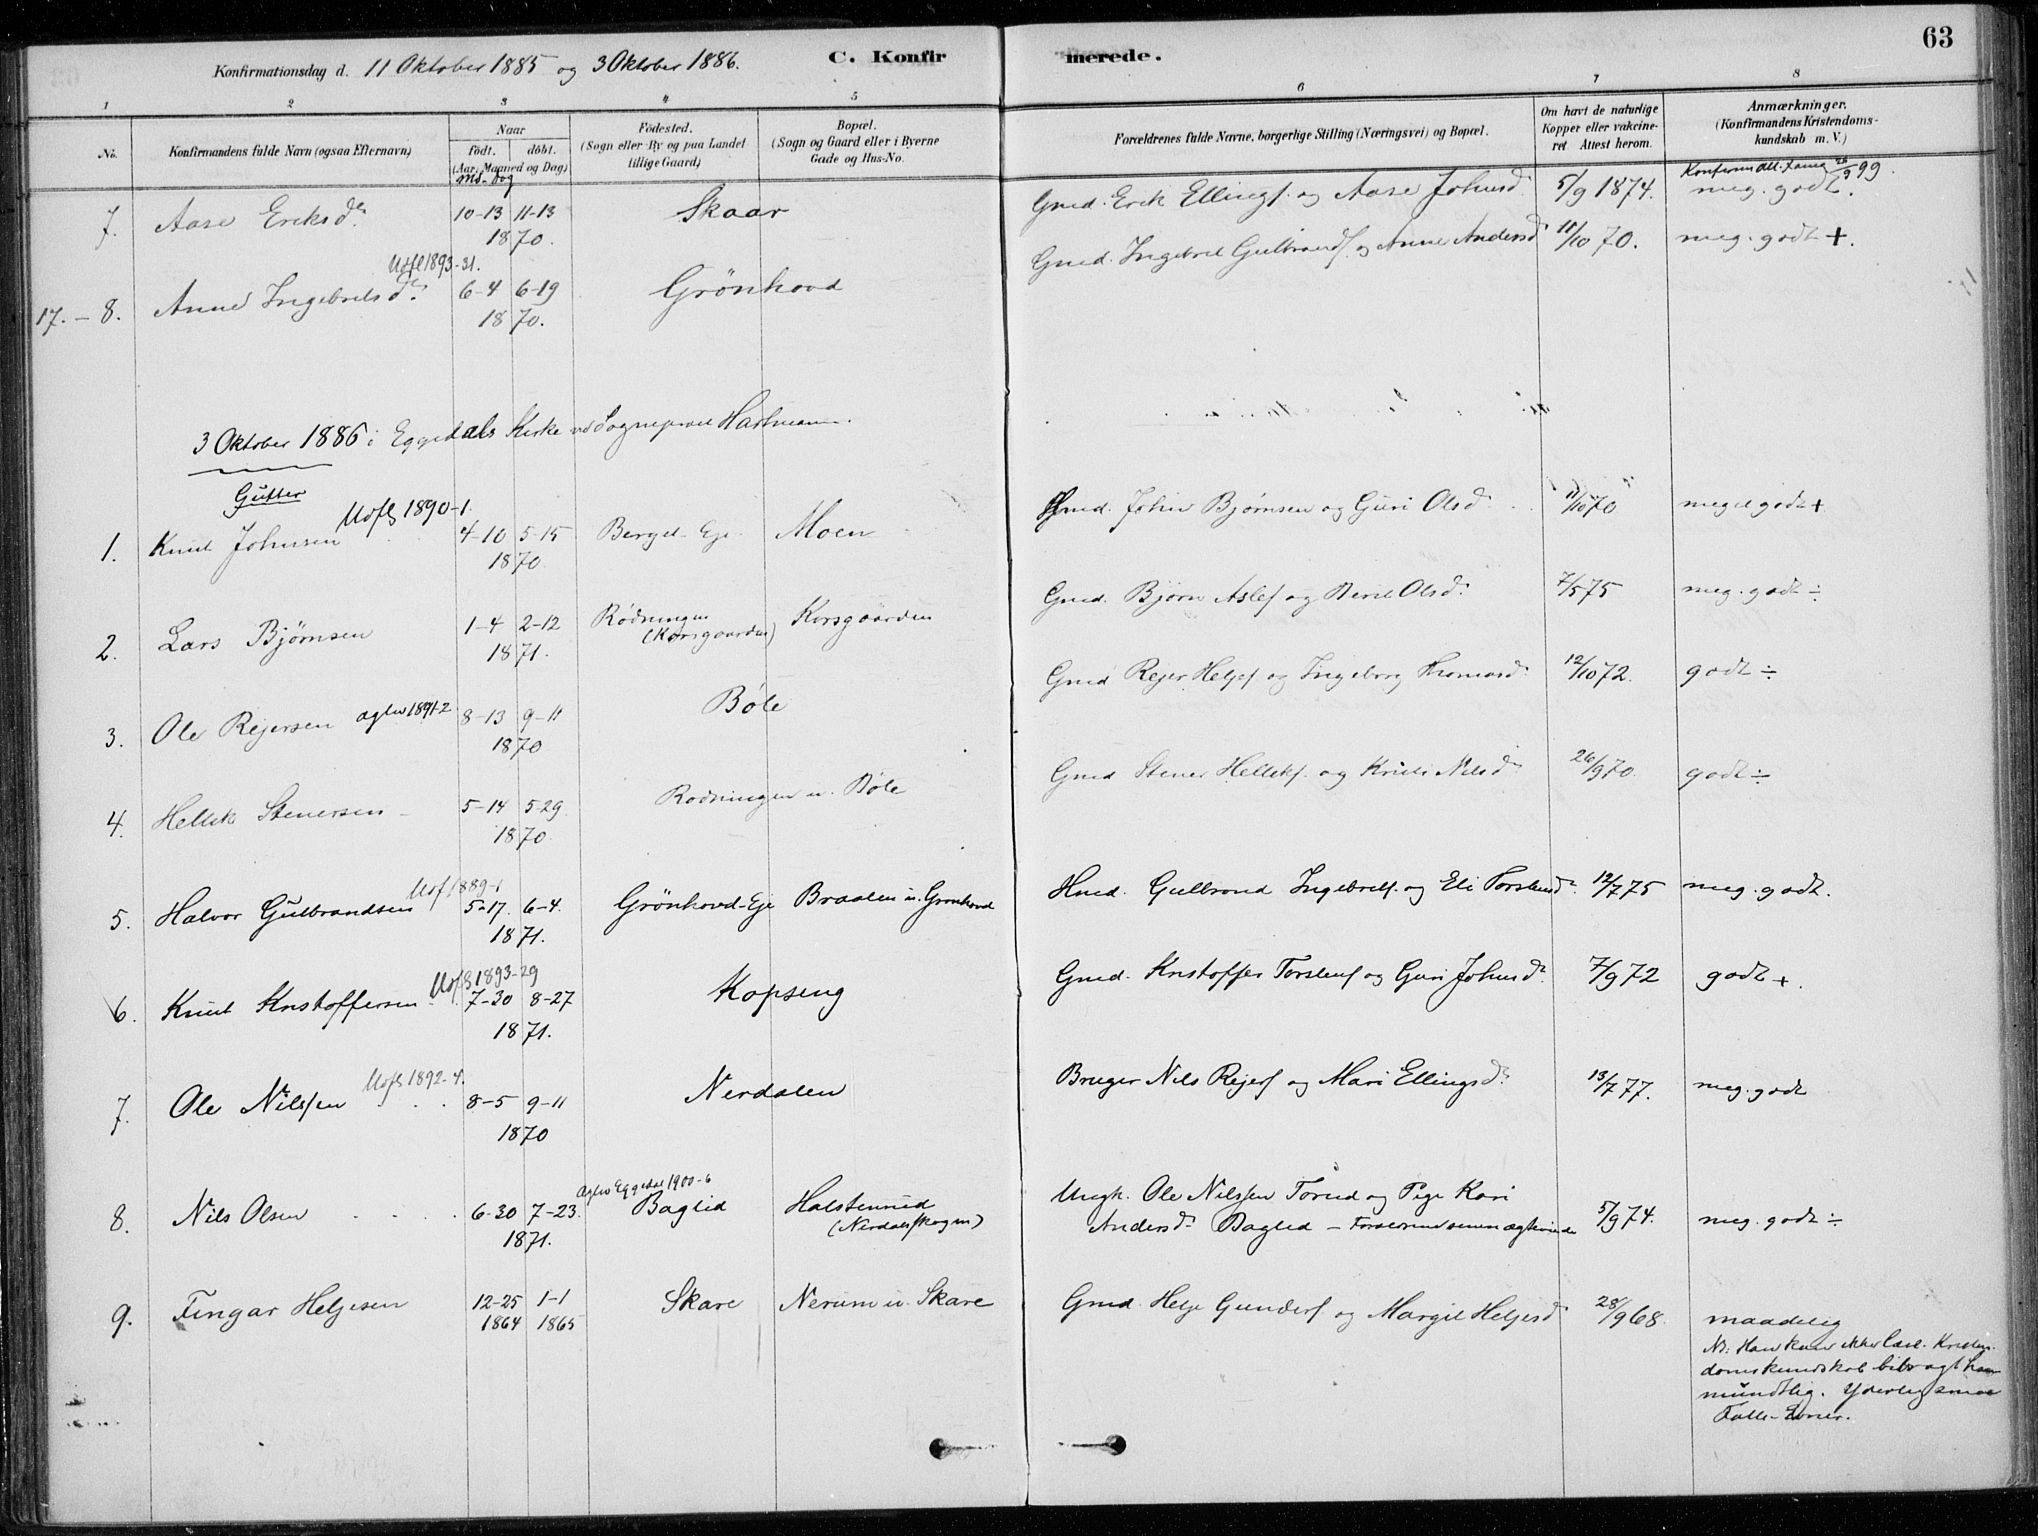 63
Konfirmationsdag d. 11 Oktober 1885 og 3 Oktober 1886. C. Konfirmerede.
1 2 3 4 5 6 7 8
No. Konfirmandens fulde Navn (ogsaa Efternavn) Naar Födt. döbt. (Aar, Maaned og Dag) Födested. (Sogn eller By og paa Landet tillige Gaard) Bopæl. (Sogn og Gaard eller i Byerne Gade og Hus-No. Forældrenes fulde Navne, borgerlige Stilling (Næringsvei) og Bopæl. Om havt de naturlige Kopper eller vakcineret Attest herom. Anmærkninger. (Konfirmandens Kristendomskundskab m. V.)
Md- Dag
7. Aase Eriksd. 10-13 11-13 1870. Skaar Gmd. Erik Ellings. og Aase Johnsd. 5/9 1874. meg. godt.
Udfl 1893-31.
17. - 8. Anne Ingebretsd. 6-4 6-19 1870. Grönhovd Gmd. Ingebret Gulbrands. og Anne Andersd. 11/10 70. meg. godt +.
3 Oktober 1886 i Eggedals Kirke ved Sognepræst Hartmann.
Gutter
Udfl 1890-1.
1. Knut Johnsen 4-10 5-15 1870 Berget-Eje Moen Gmd. John Bjørnsen og Guri Olsd. 11/10 70 meget godt +
2. Lars Bjørnsen 1-4 2-12 1871. Rødningen (Korsgaarden) Korsgaarden Gmd. Bjørn Asles. og Berit Olsd. 7/5 75 meg. godt ÷
3. Ole Rejersen 1891-2 8-13 9-11 1870 Böle Gmd Rejer Heljes. og Ingeborg Thomasd. 12/10 72. godt ÷
4. Hellek Stenersen 5-14 5-29 1870 Rødningen u. Böle Gmd Stener Helleks. og Nilsd. 26/9 70. godt ÷
Udf. 1889-1
5. Halvor Gulbrandsen 5-17. 6-4. 1871. Grönhovd-Eje Braaten u. Grønhovd Hmd. Gulbrand Ingebrets. og Eli Torstensd. 12/7 75 meg. godt.
Udfl 1893-29
6. Knut Kristoffersen 7-30 8-27 1871. Kopseng Gmd. Kristoffer Torstens. og Guri Johnsd. 7/9 72 godt +.
Udfl 1892-4.
7. Ole Nilssen 8-5 9-11 1870 Nerdalen Bruger Nils Rejers. og Mari Ellingsd. 13/7 77. meg. godt
Eggedal 1900-6
8. Nils Olsen 6-30 7-23. 1871. Baglid Halstenrud (Nerdalsskogen) Ungk. Ole Nilssen Torud og Pige Kari
Andersd. Baglid - 5/9 74. meg. godt ÷
9. Fingar Heljesen 12-25 1864 1-1 1865 Skare Nerum u. Skare Gmd. Helje Gunders. og Margit Heljesd. 28/9 68. maadelig
NB: Han kan ikke læse. Kristen-
domskundskab bibragt ham
mundtlig. Yderlig svage